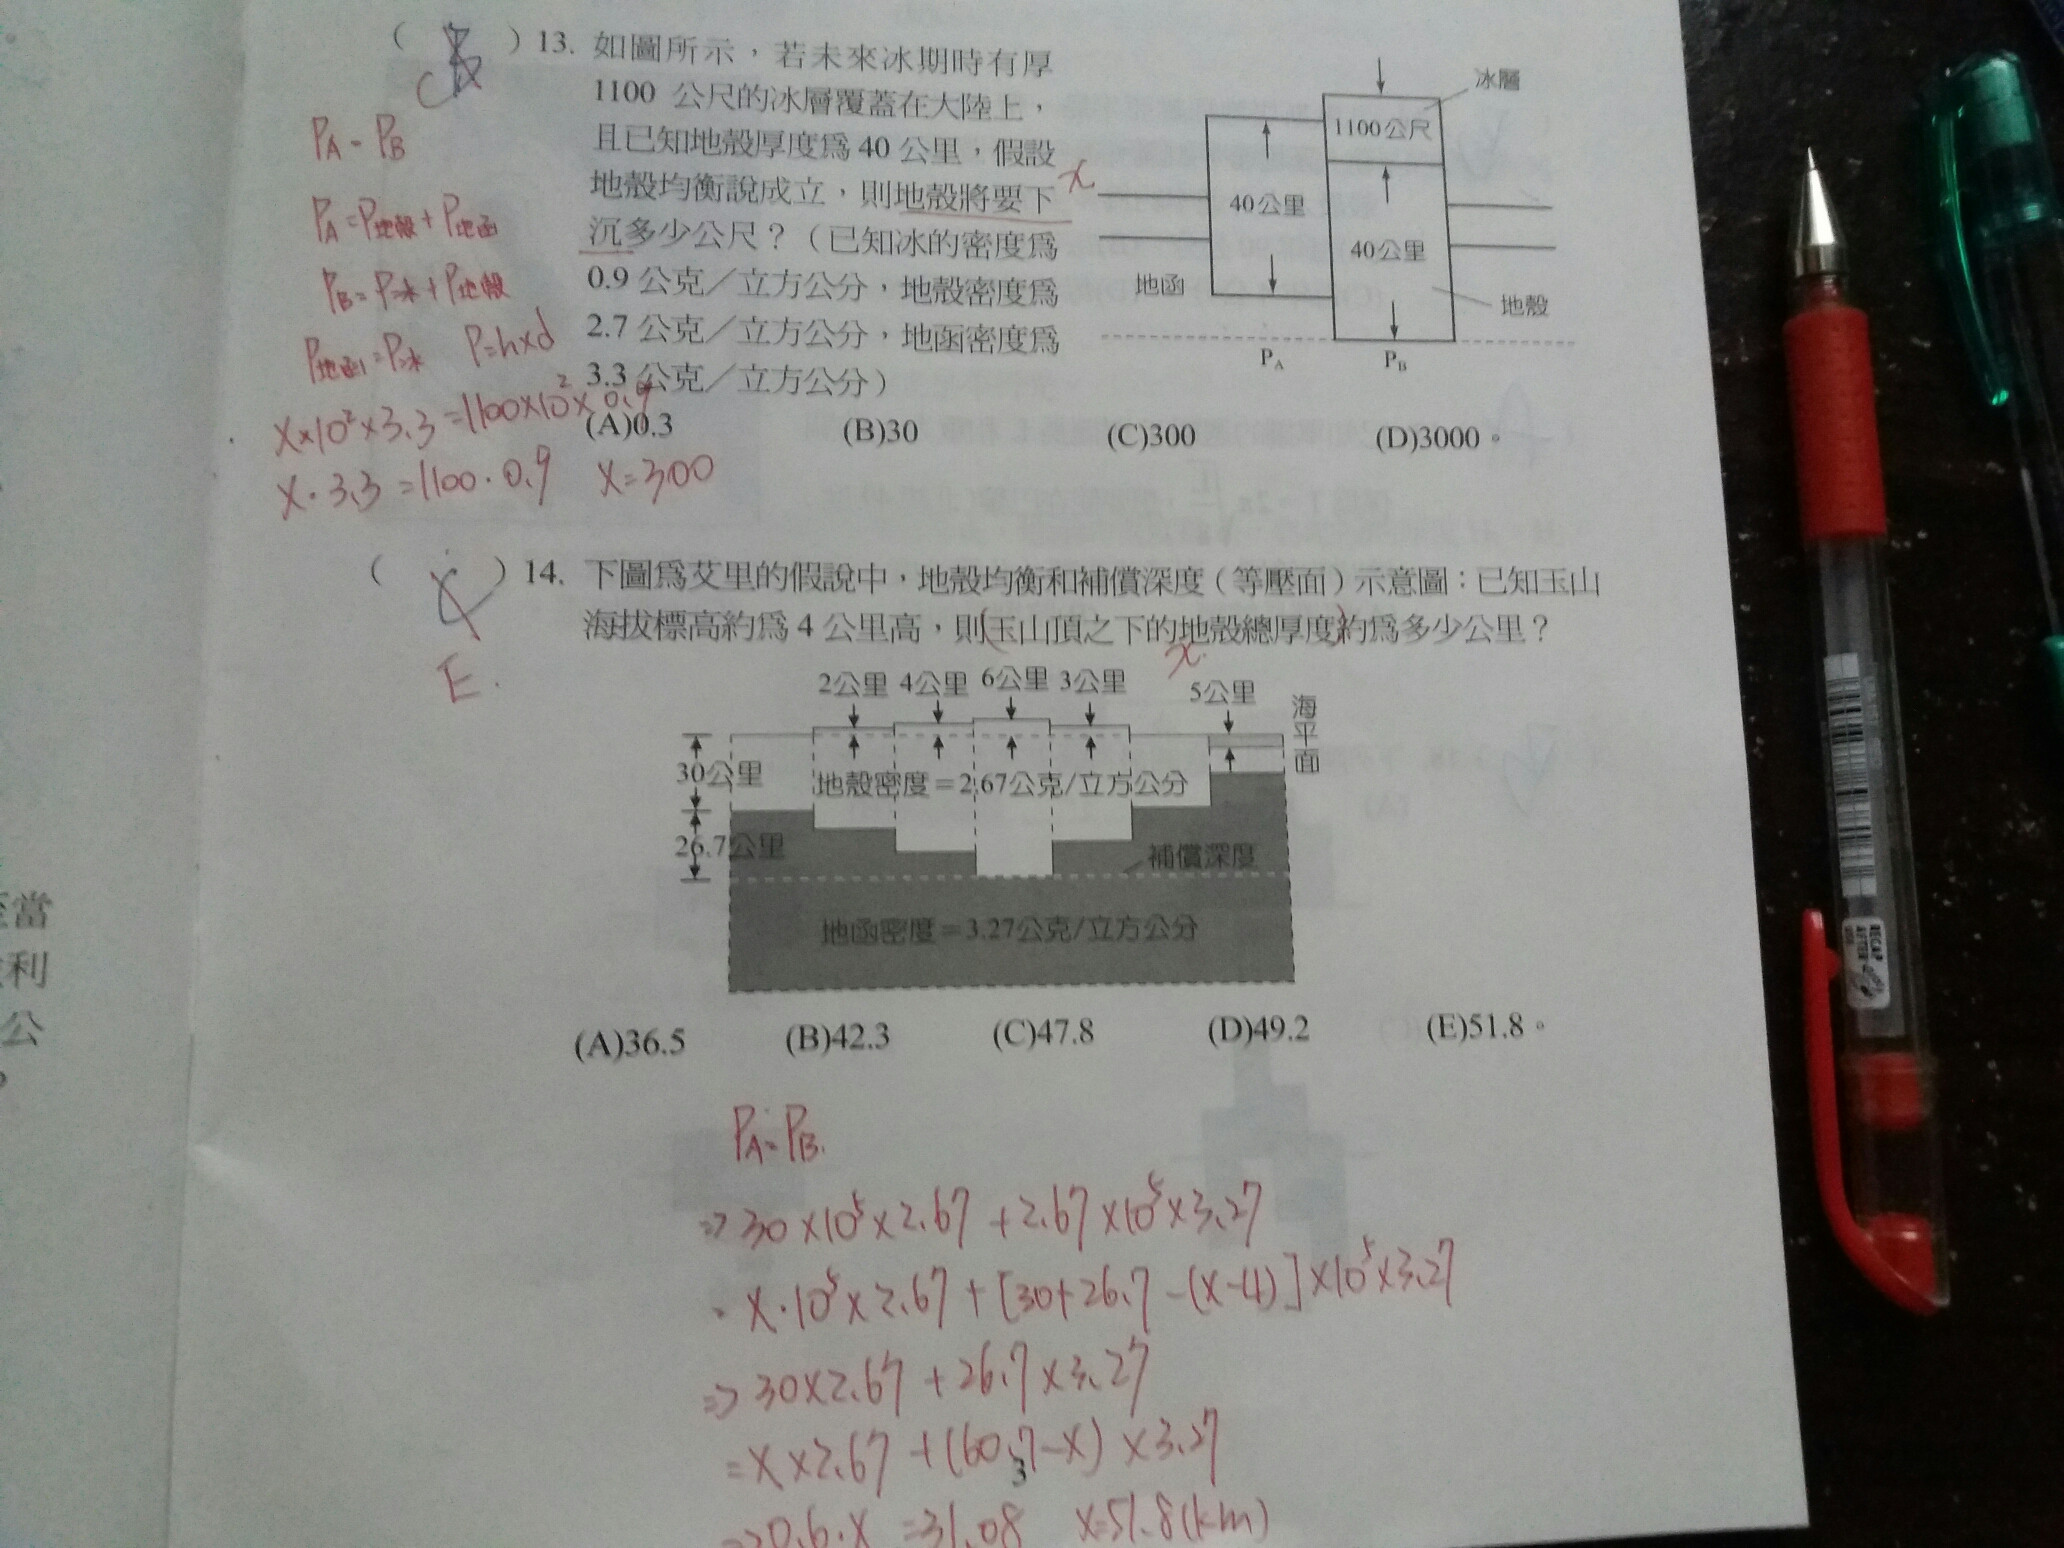 ( ) 13. 如圖所示，若未來冰期時有厚
1100 公尺的冰層覆蓋在大陸上，
且已知地殼厚度為 40 公里，假設
地殼均衡說成立，則地殼將要下
沉多少公尺？（已知冰的密度為
0.9 公克／立方公分，地殼密度為
2.7 公克／立方公分，地函密度為
3.3 公克／立方公分）
(A)0.3 (B)30 (C)300 (D)3000。
冰層
1100公尺
40公里
40公里
地函
地殼
x
PA PB
PA = PB
PA = P地殼 + P地函
PB = P冰 + P地殼
P地函 = P冰 P=h×d
X×10²×3.3 = 1100×10²×0.9
X·3.3 = 1100·0.9 X=300
( ) 14. 下圖為艾里的假說中，地殼均衡和補償深度（等壓面）示意圖：已知玉山
海拔標高約為 4 公里高，則玉山頂之下的地殼總厚度約為多少公里？
x
E.
2公里 4公里 6公里 3公里 5公里
海平面
30公里
地殼密度＝2.67公克/立方公分
26.7公里
補償深度
地函密度＝3.27公克/立方公分
(A)36.5 (B)42.3 (C)47.8 (D)49.2 (E)51.8。
PA=PB.
=>30×10⁵×2.67+2.67×10⁵×3.27
=X·10⁵×2.67+[30+26.7-(X-4)]×10⁵×3.27
=>30×2.67+26.7×3.27
=X×2.67+(60.7-X)×3.27
3
=>0.6·X=31.08 X=51.8(km)
RECAP
AFTER
USE
至當
利
公